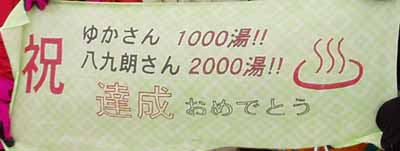 祝
ゆかさん 1000湯!!
八九朗さん 2000湯!!
達成 おめでとう